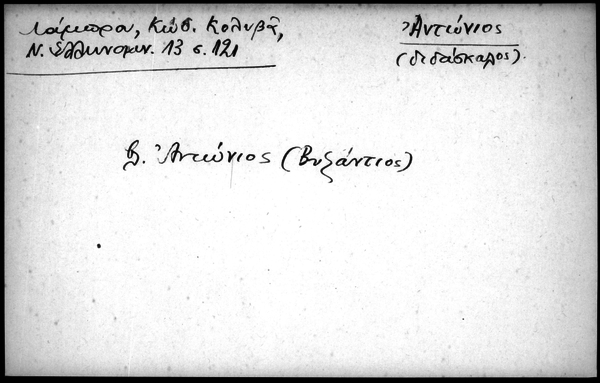 Λάμπρου, Κώδ. Κολυβᾶ,
Ν. Ἑλληνομν. 13 σ. 121
Ἀντώνιος
(διδάσκαλος).
β. Ἀντώνιος (Βυζάντιος)